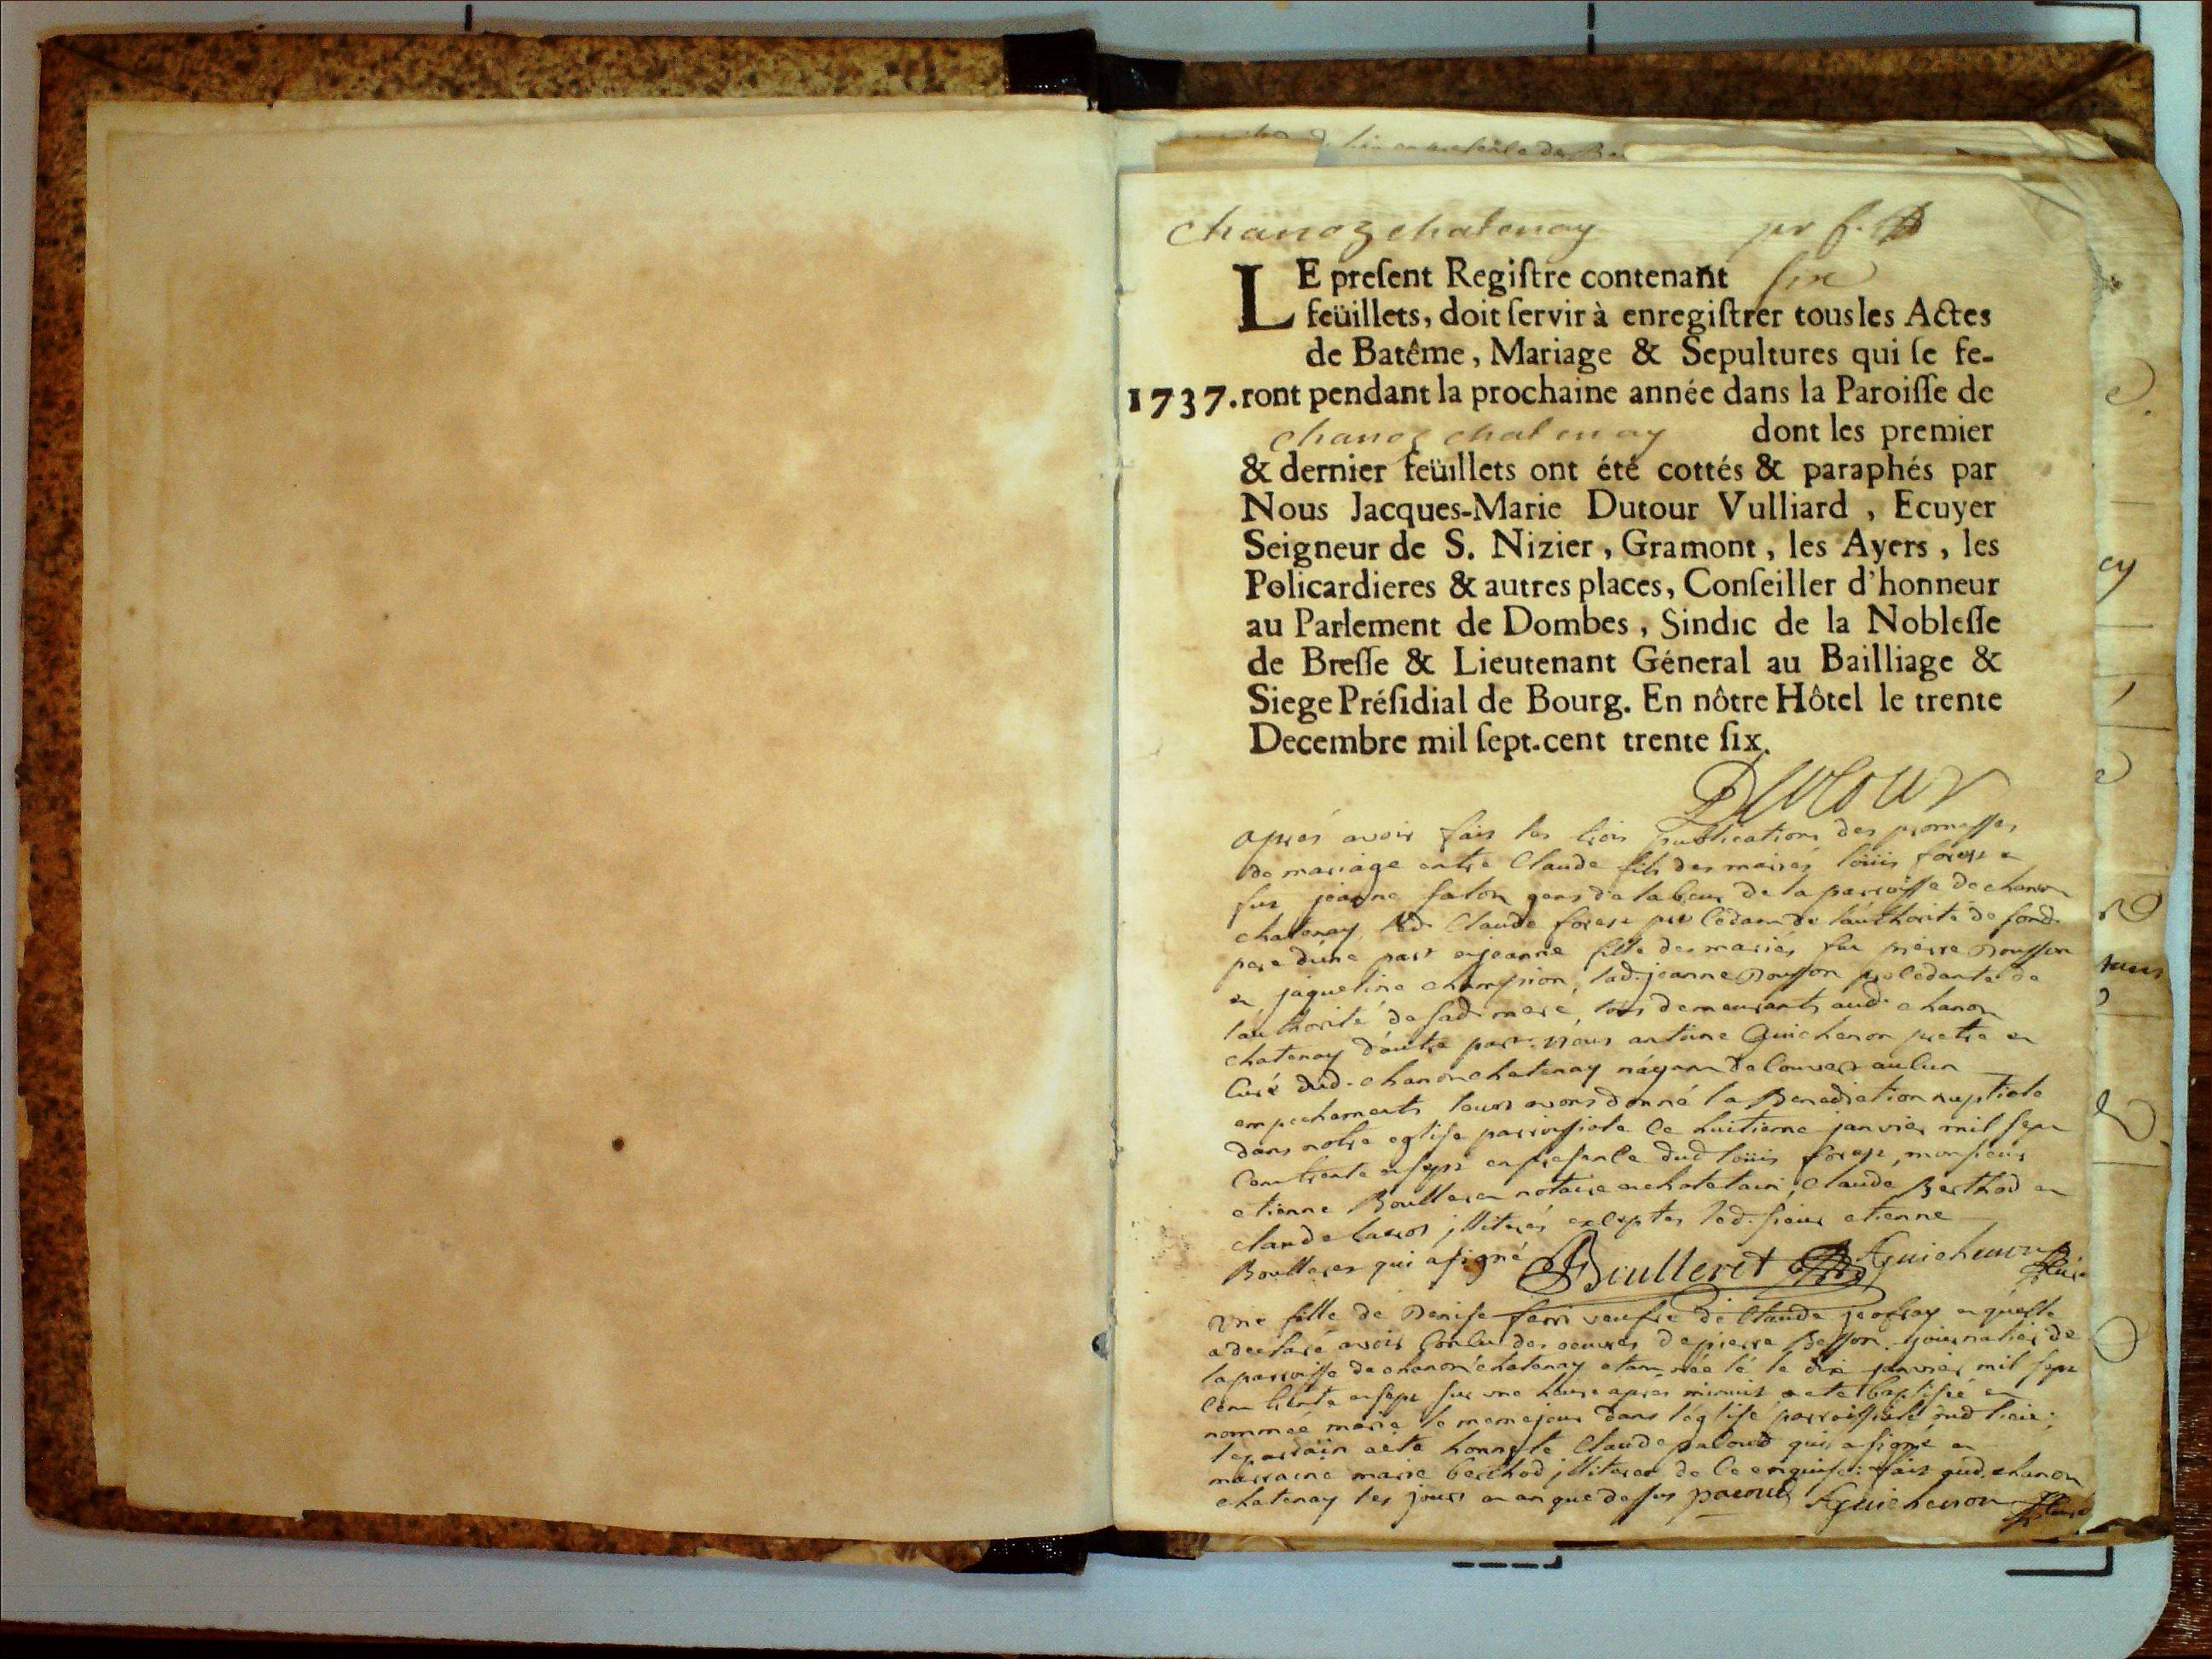 chanoz chatenay per f.
LE preſent Regiſtre contenant six
feüillets, doit ſervir à enregiſtrer tous les Actes
de Batême, Mariage & Sepultures qui ſe fe-
1737. ront pendant la prochaine année dans la Paroiſſe de
chanoz chatenay dont les premier
& dernier feüillets ont été cottés & paraphés par
Nous Jacques-Marie Dutour Vulliard, Ecuyer
Seigneur de S. Nizier, Gramont, les Ayers, les
Policardieres & autres places, Conſeiller d'honneur
au Parlement de Dombes, Sindic de la Nobleſſe
de Breſſe & Lieutenant Géneral au Bailliage &
Siege Préſidial de Bourg. En nôtre Hôtel le trente
Decembre mil ſept.cent trente ſix.
Dutour
aprés avoir fait les trois publications des promesses
de mariage entre Claude fils des mariés loüis forest et
fue jeanne gens de labeur de la parroisse de chanon
chatenay led. Claude forest procedant de l'authorité de sond.
pere d'une part et jeanne fille des mariés fut pierre
et jaqueline champion, lad. jeanne procedante de
l'authorité de sad. mere, tous demeurants aud. chanon
chatenay d'autre part. nous antoine Guichenon pretre et
Curé dud. chanon chatenay n'ayant découvert aucun
empechements leurs avons donné la Benediction nuptiale
dans notre eglise parroissiale le huitieme janvier mil sept
cent trente et sept en presence dud. loüis forest, monsieur
etienne Boulleret notaire et chatelain, Claude Berthod et
claude illiterés exceptés led. sieur etienne
Boulleret qui a signé Boulleret AGuichenon Curé
Une fille de Denise veufve de Claude geofray et quelle
a declaré avoir Conçu des oeuvres de pierre Besson journalier de
la parroisse de chanon chatenay etant née le dix janvier mil sept
cent trente et sept sur une heure apres minuit a eté baptisée et
nommée marie le meme jour dans l'église parroissiale dud. lieu;
le parrain a eté honneste Claude pacoud qui a signé et
marraine marie berthod illiterée de ce enquise: fait aud. chanon
chatenay les jours et an que dessus pacoud AGuichenon Curé